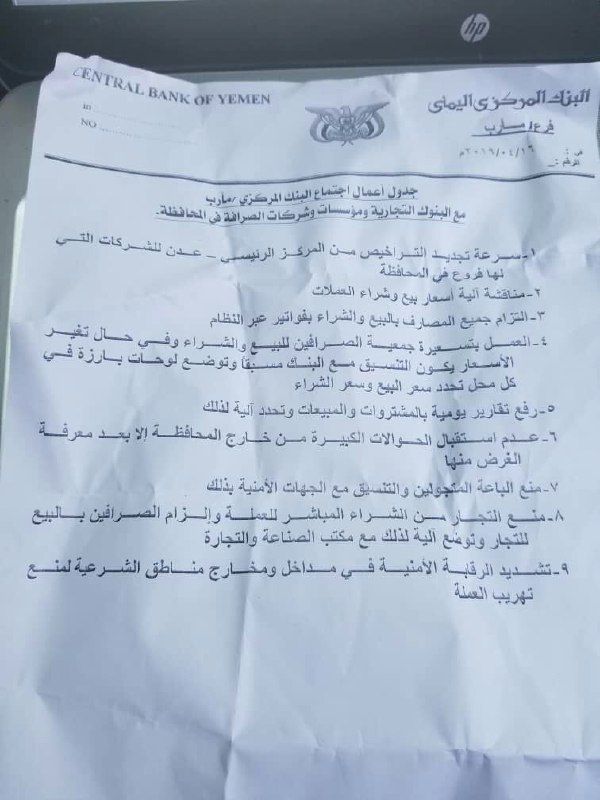 hp
CENTRAL BANK OF YEMEN
in ....................
NO ....................
البنك المركزي اليمني
فرع/ مارب
٢٠١٩/٠٤/١٦م
الرقم:
جدول أعمال اجتماع البنك المركزي /مارب
مع البنوك التجارية ومؤسسات وشركات الصرافة في المحافظة.
١-سرعة تجديد التراخيص من المركز الرئيسي – عدن للشركات التي
لها فروع في المحافظة
٢-مناقشة آلية أسعار بيع وشراء العملات
٣-التزام جميع المصارف بالبيع والشراء بفواتير عبر النظام
٤-العمل بتسعيرة جمعية الصرافين للبيع والشراء وفي حال تغير
الأسعار يكون التنسيق مع البنك مسبقاً وتوضع لوحات بارزة في
كل محل تحدد سعر البيع وسعر الشراء
٥-رفع تقارير يومية بالمشتروات والمبيعات وتحدد آلية لذلك
٦-عدم استقبال الحوالات الكبيرة من خارج المحافظة إلا بعد معرفة
الغرض منها
٧-منع الباعة المتجولين والتنسيق مع الجهات الأمنية بذلك
٨-منع التجار من الشراء المباشر للعملة وإلزام الصرافين بالبيع
للتجار وتوضع آلية لذلك مع مكتب الصناعة والتجارة
٩-تشديد الرقابة الأمنية في مداخل ومخارج مناطق الشرعية لمنع
تهريب العملة